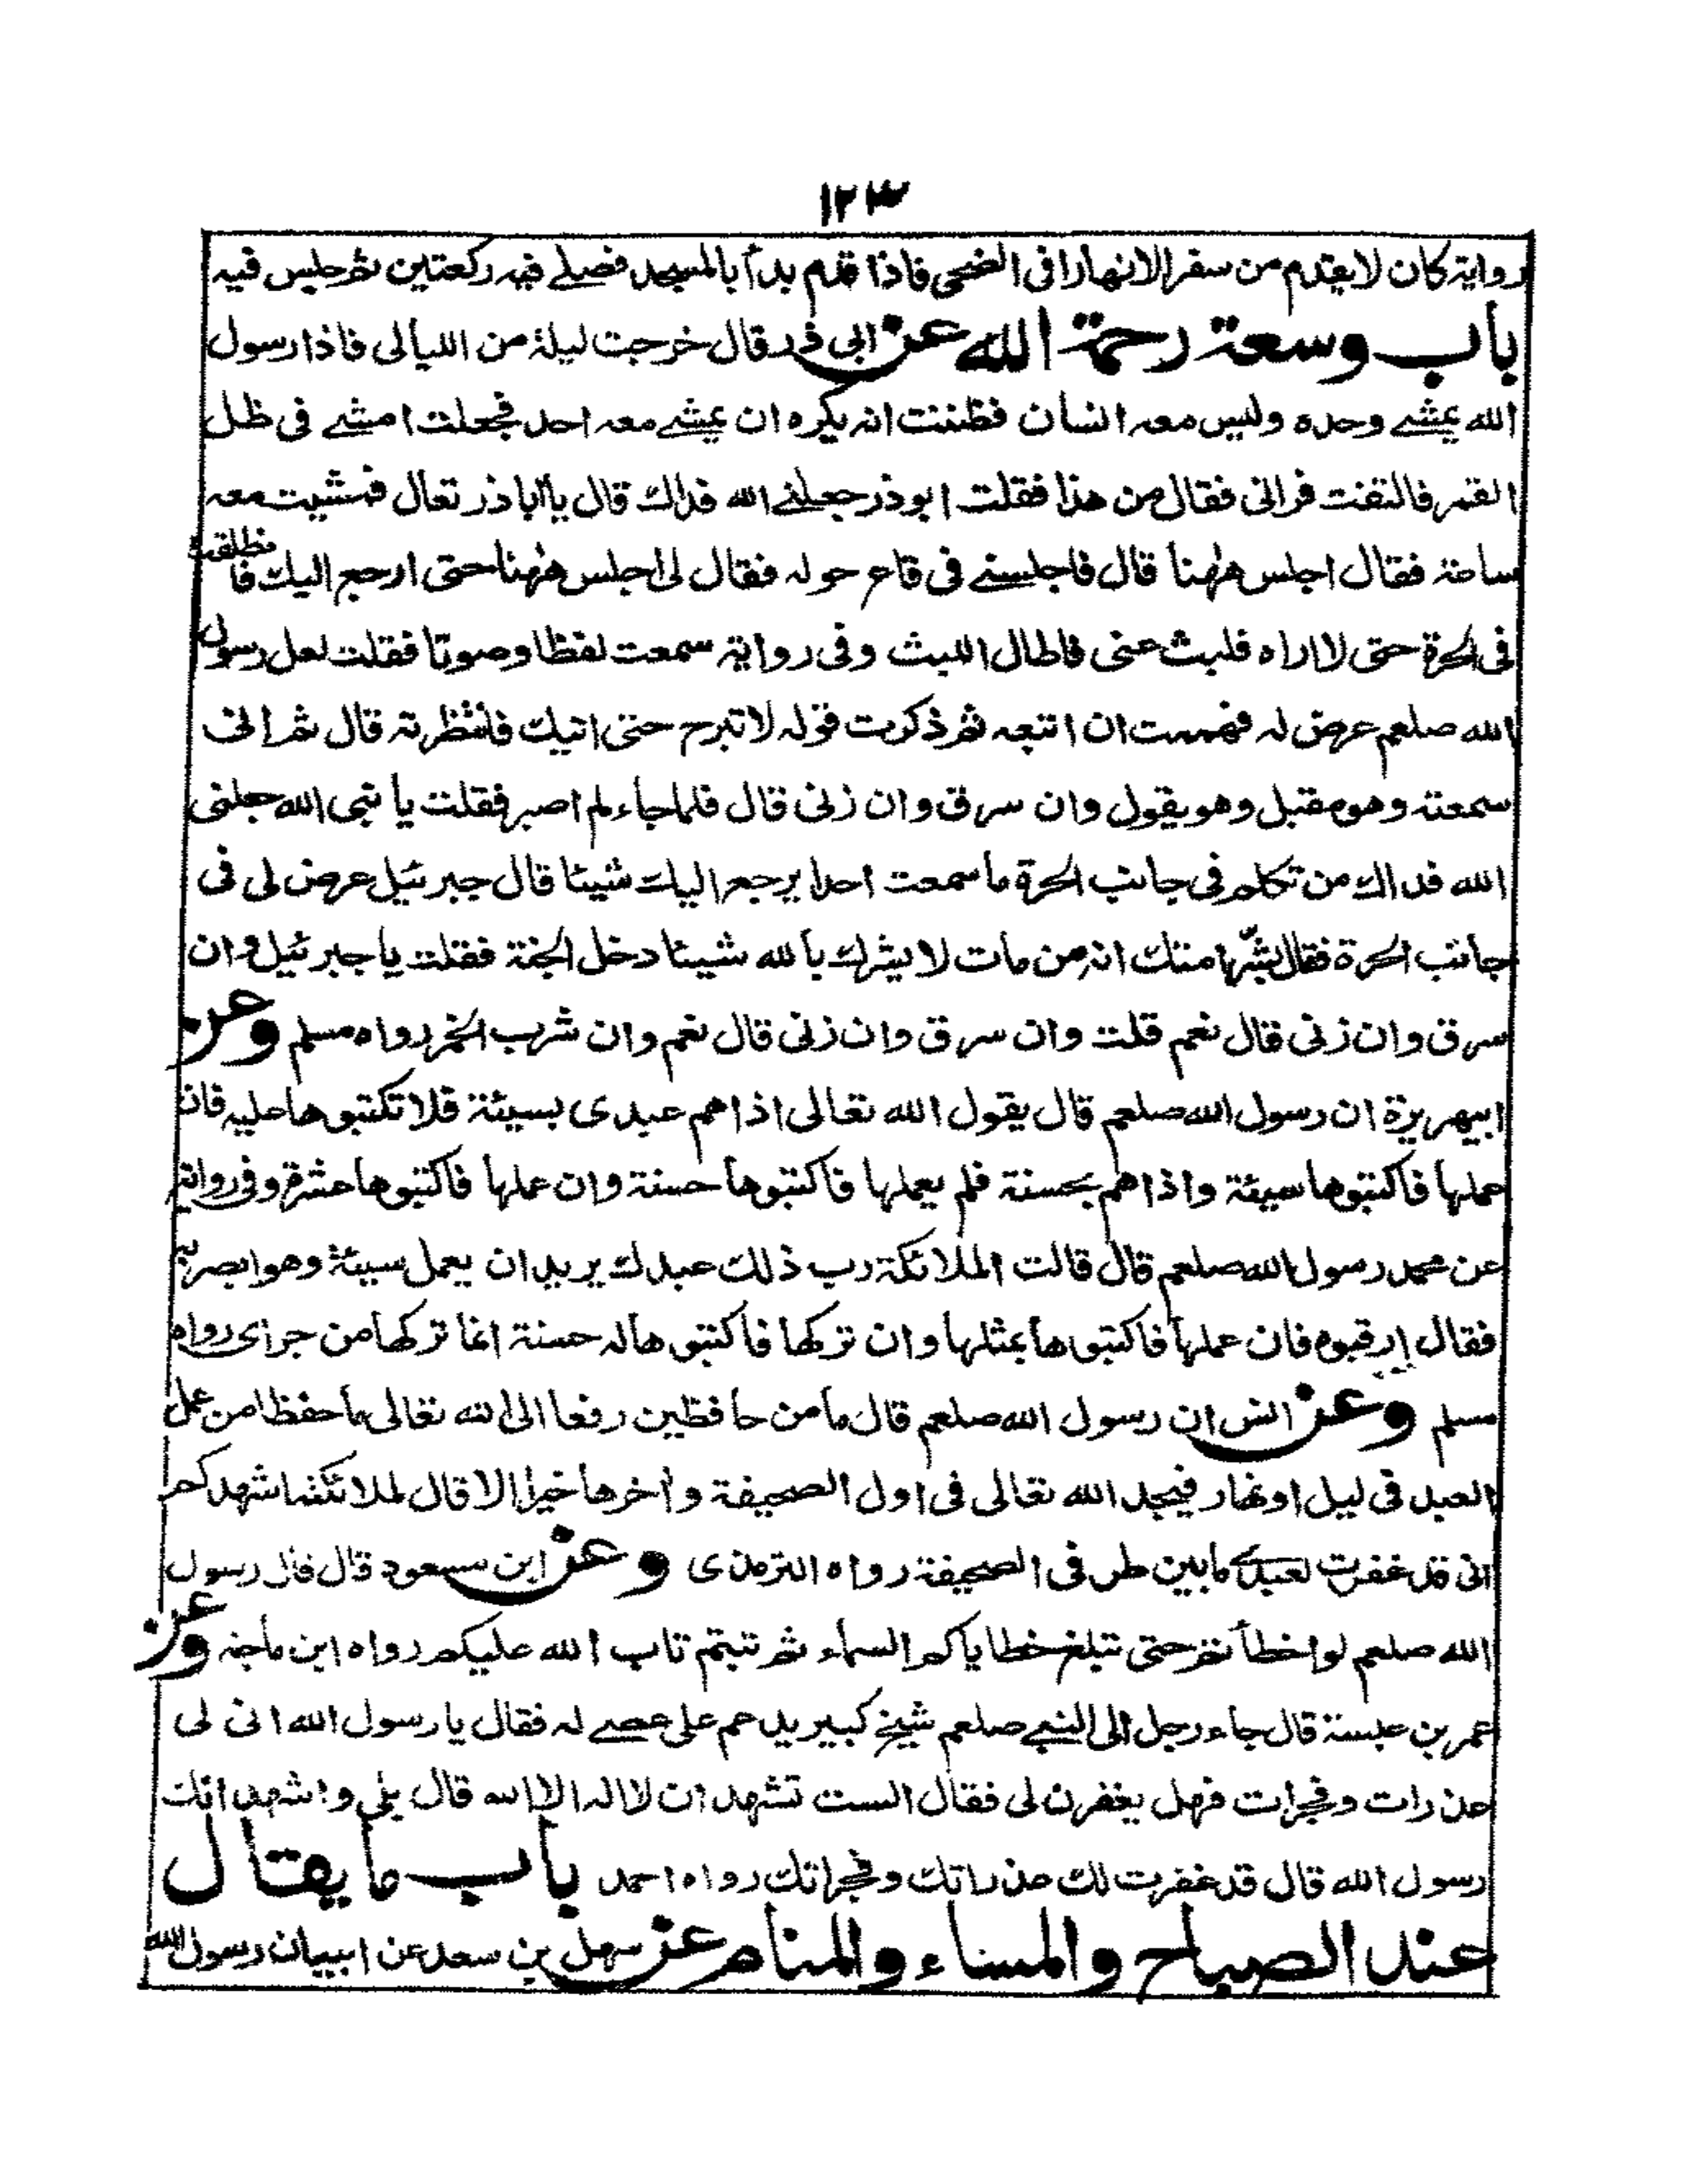 ١٢٣
رواية كان لا يقدم من سفر الا نهارا فى الضحى فاذا قدم بدأ بالمسجد فصلے فيه ركعتين ثم جلس فيه
باب وسعة رحمة الله عن ابى ذر قال خرجت ليلة من الليالى فاذا رسول
الله يمشے وحده وليس معه انسان فظننت انه يكره ان يمشے معه احد فجعلت امشے فى ظل
القمر فالتفت فرانى فقال من هذا فقلت ابو ذر جعلنے الله فداك قال يا ابا ذر تعال فمشيت معه
ساعة فقال اجلس ههنا قال فاجلسنے فى قاع حوله فقال لى اجلس ههنا حتى ارجع اليك فانطلق
فى الحرة حتى لا اراه فلبث عنى فاطال اللبث وفى رواية سمعت لغطا وصوتا فقلت لعل رسول
الله صلعم عرض له فهممت ان اتبعه ثم ذكرت قوله لا تبرح حتى اتيك فانتظرته قال ثم انى
سمعته وهو مقبل وهو يقول وان سرق وان زنى قال فلما جاء لم اصبر فقلت يا نبى الله جعلنى
الله فداك من تكلم فى جانب الحرة ما سمعت احدا يرجع اليك شيئا قال جبرئيل عرض لى فى
جانب الحرة فقال بشر امتك انه من مات لا يشرك بالله شيئا دخل الجنة فقلت يا جبرئيل وان
سرق وان زنى قال نعم قلت وان سرق وان زنى قال نعم وان شرب الخمر رواه مسلم وعن
ابيهريرة ان رسول الله صلعم قال يقول الله تعالى اذا هم عبدى بسيئة فلا تكتبوها عليه فان
عملها فاكتبوها سيئة واذا هم بحسنة فلم يعملها فاكتبوها حسنة وان عملها فاكتبوها عشرة وفى رواية
عن محمد رسول الله صلعم قال قالت الملائكة رب ذلك عبدك يريد ان يعمل سيئة وهو ابصر به
فقال ارقبوه فان عملها فاكتبوها بمثلها وان تركها فاكتبوها له حسنة انما تركها من جراى رواه
مسلم وعن انس ان رسول الله صلعم قال ما من حافظين رفعا الى الله تعالى ما حفظا من عمل
العبد فى ليل او نهار فيجد الله تعالى فى اول الصحيفة واخرها خيرا الا قال لملائكته اشهدكم
انى قد غفرت لعبدى ما بين طرفى الصحيفة رواه الترمذى وعن ابن مسعود قال قال رسول
الله صلعم لو اخطأتم حتى تبلغ خطاياكم السماء ثم تبتم تاب الله عليكم رواه ابن ماجه وعن
عمر بن عبسة قال جاء رجل الى النبے صلعم شيخ كبير يدعم على عصے له فقال يا رسول الله انى لى
غدرات وفجرات فهل يغفرن لى فقال الست تشهد ان لا اله الا الله قال بلى واشهد انك
رسول الله قال قد غفرت لك غدراتك وفجراتك رواه احمد باب ما يقال
عند الصباح والمساء والمنام عن سهل بن سعد عن ابيان رسول الله